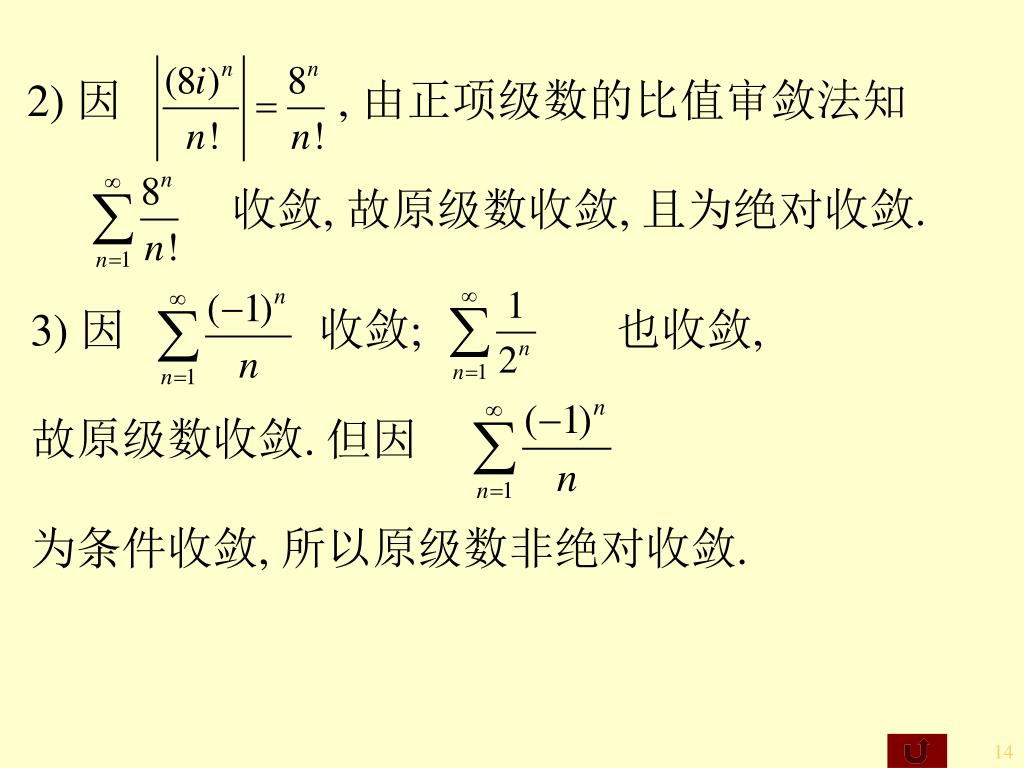 2) 因 $\left|\frac{(8i)^n}{n!}\right| = \frac{8^n}{n!}$ , 由正项级数的比值审敛法知
$\sum_{n=1}^{\infty} \frac{8^n}{n!}$ 收敛, 故原级数收敛, 且为绝对收敛.
3) 因 $\sum_{n=1}^{\infty} \frac{(-1)^n}{n}$ 收敛; $\sum_{n=1}^{\infty} \frac{1}{2^n}$ 也收敛,
故原级数收敛. 但因 $\sum_{n=1}^{\infty} \frac{(-1)^n}{n}$
为条件收敛, 所以原级数非绝对收敛.
14